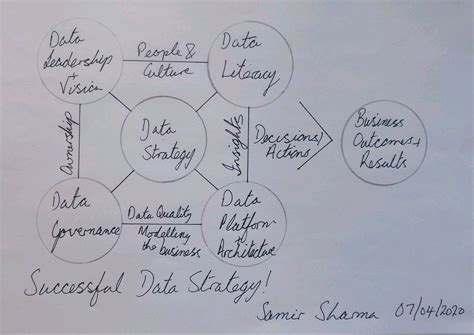 Data
Leadership
+
Vision
People &
Culture
Data
Literacy
Ownership
Data
Strategy
Insights
Decisions/
Actions
Business
Outcomes +
Results
Data
Governance
Data Quality
Modelling
the business
Data
Platform
+
Architecture
Successful Data Strategy!
Samir Sharma 07/04/2020